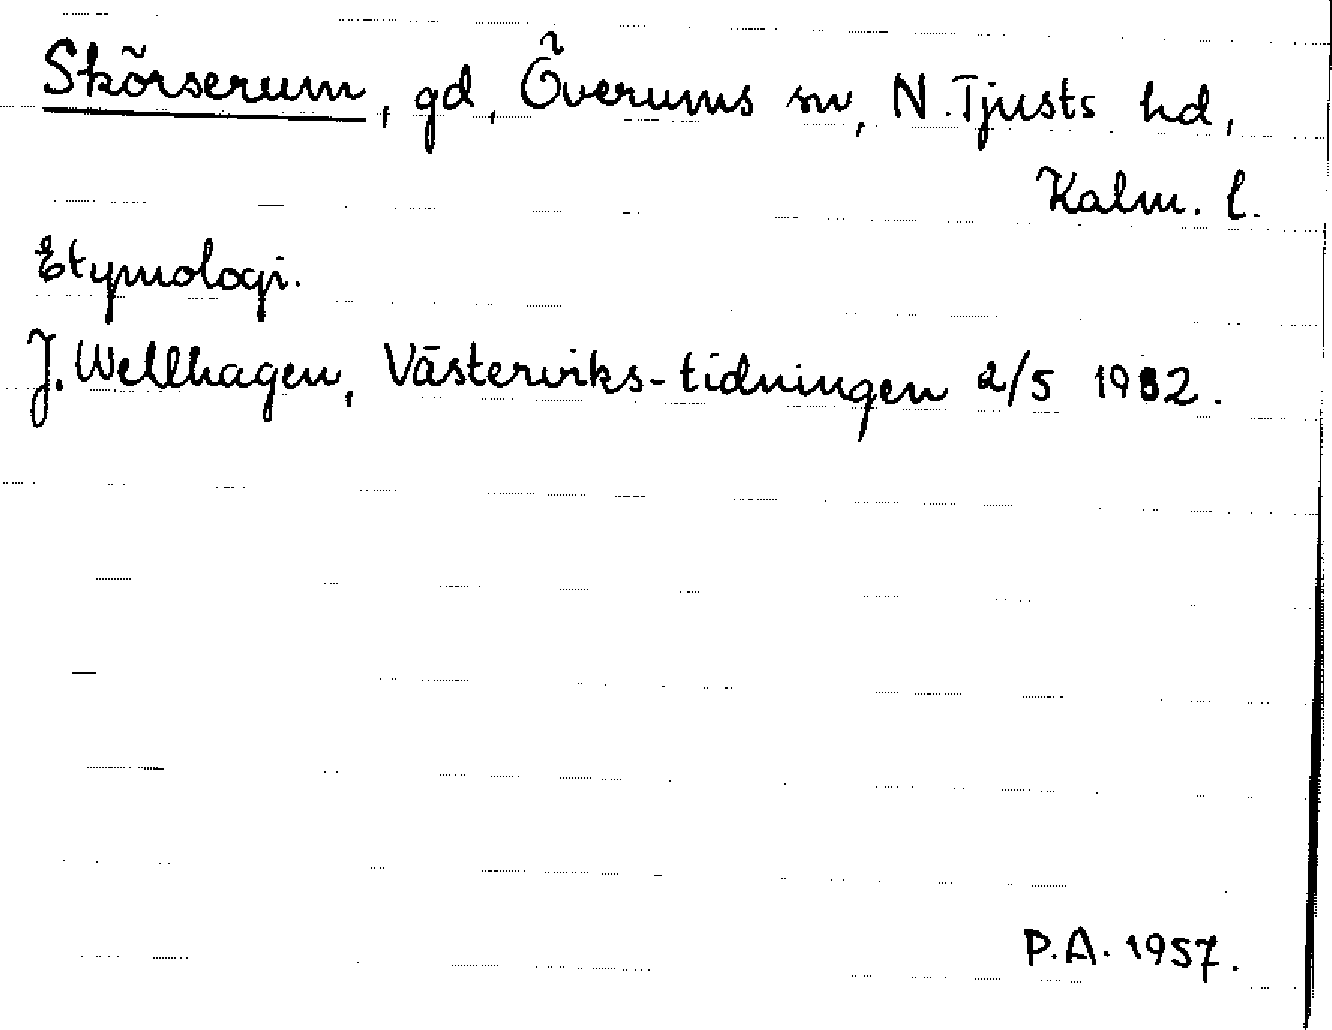 Skörserum, gd, Överums sn, N. Tjusts hd,
Kalm. l.
Etymologi.
J. Wellhagen, Västerviks-tidningen 2/5
P.A. 1957.